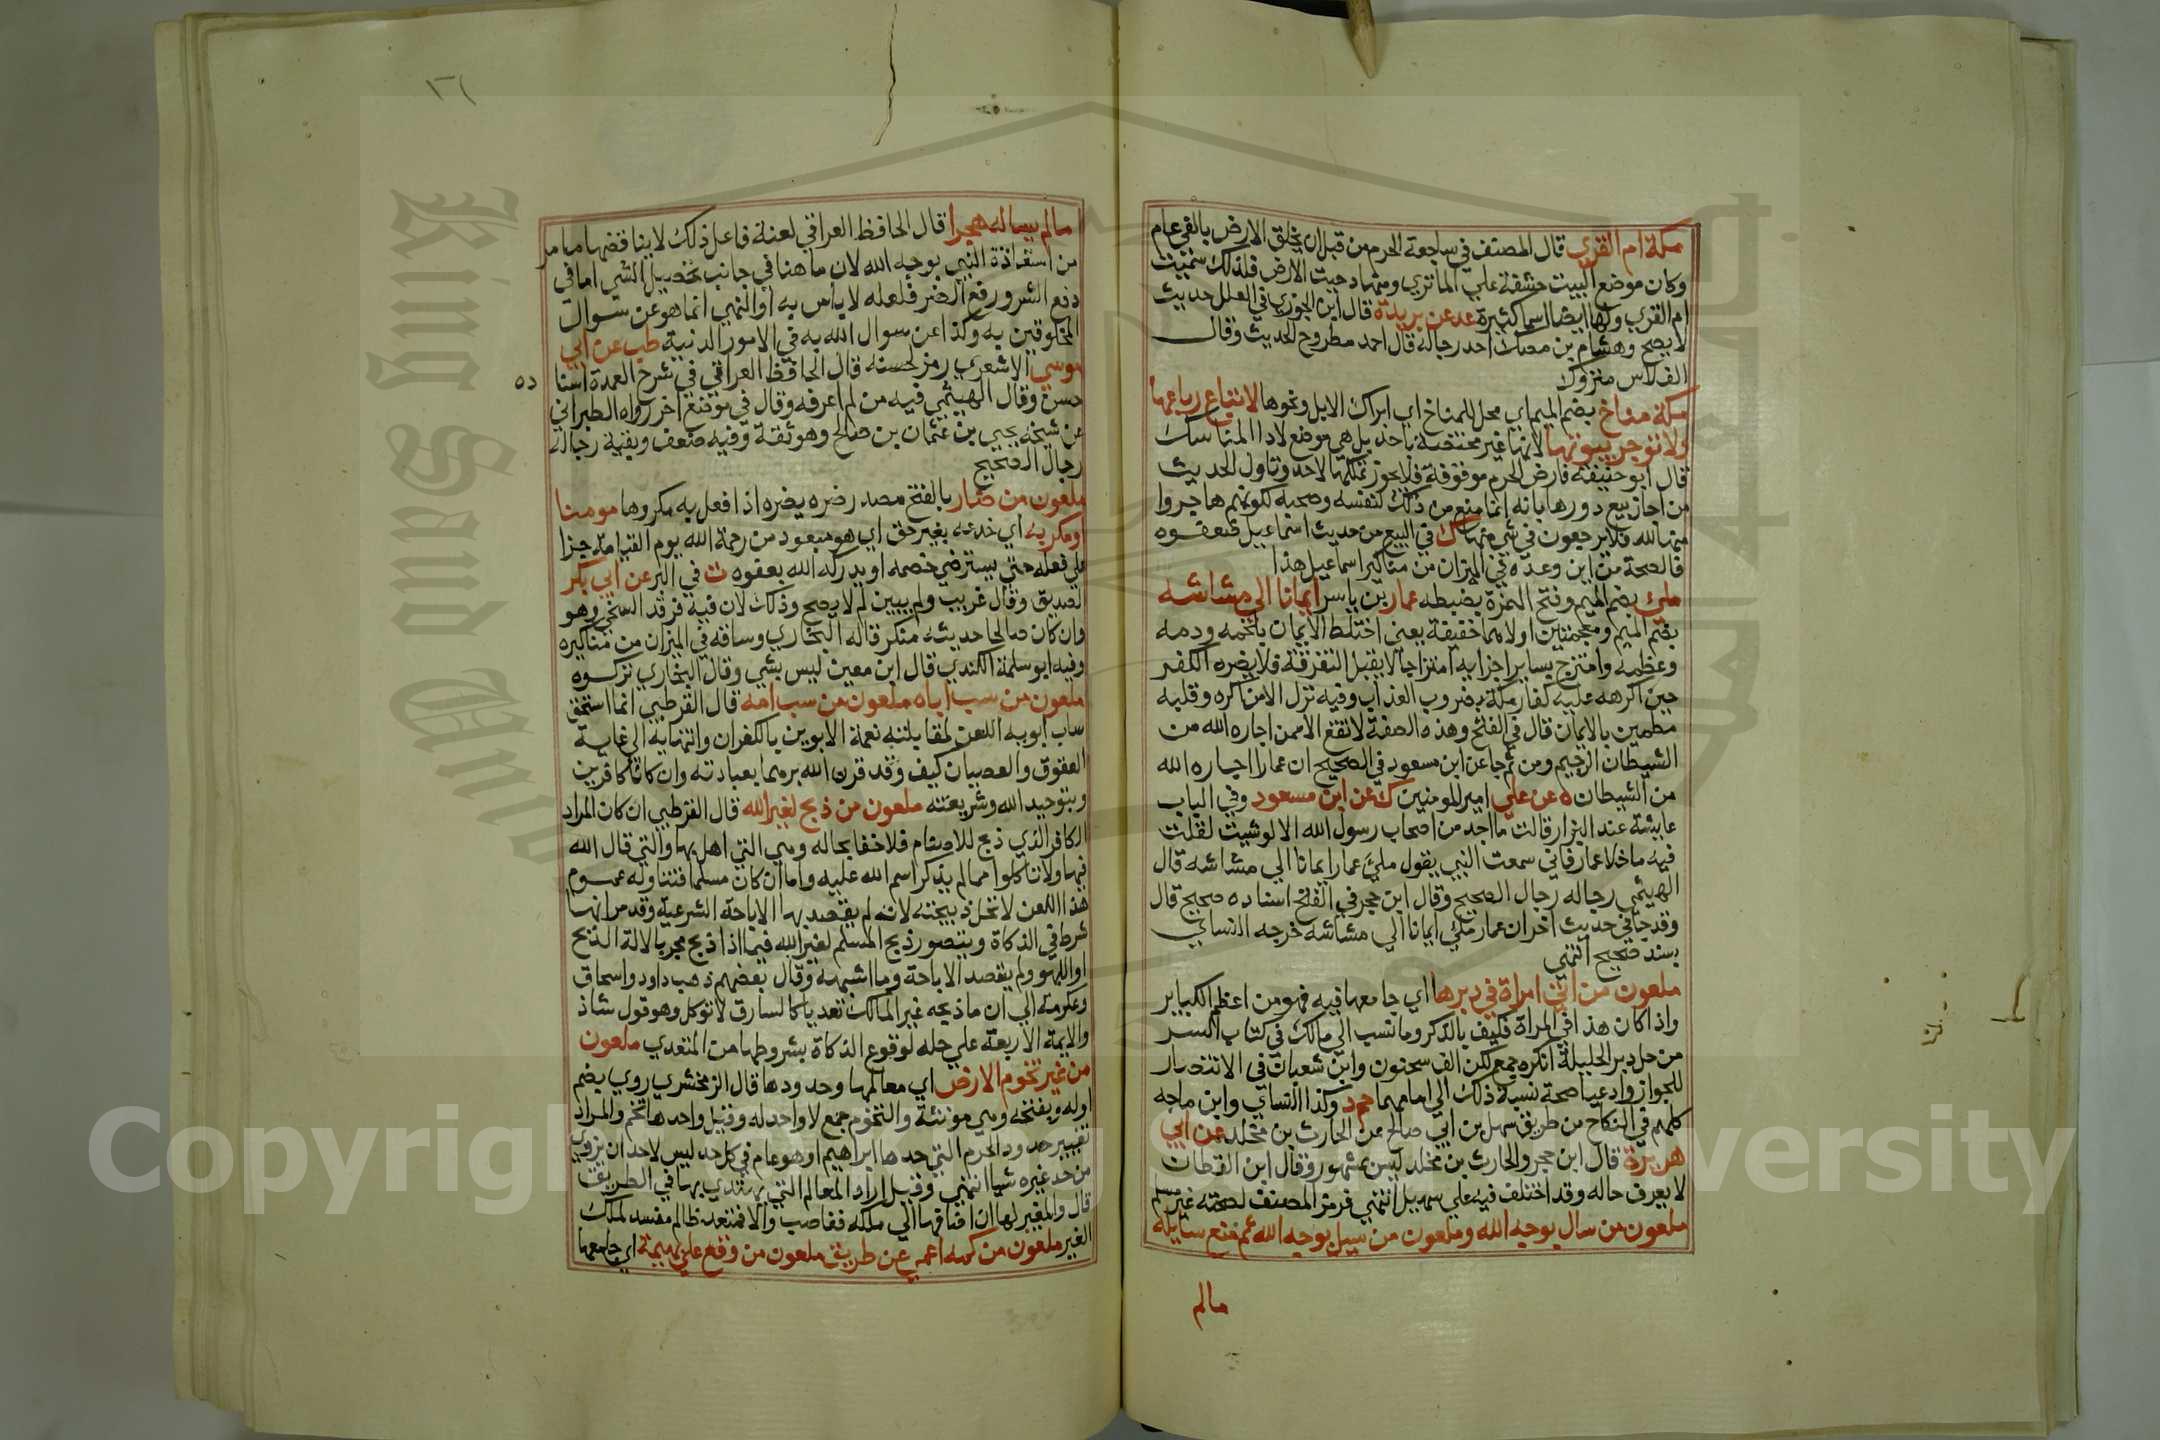 مكة ام القري قال المصنف في ساجعة الحرم من قبل ان يخلق الارض بالفي عام
وكان موضع البيت حشفة علي الما تري ومنها دحيت الارض فلذلك سميت
ام القري ولها ايضا اسما كثيرة عد عن بريدة قال ابن الجوزي في العلل حديث
لا يصح وهشام بن مصك احد رجاله قال احمد مطروح الحديث وقال
الفلاس متروك
مكة مناخ بضم الميم اي محل للمناخ اي ابراك الابل ونحوها لا تباع رباعها
ولا توجر بيوتها لانها غير مختصة باحد بل هي موضع لادا المناسك
قال ابو حنيفة فارض الحرم موقوفة فلا يجوز تملكها لاحد وتاول الحديث
من اجاز بيع دورها بانه انما منع من ذلك لنفسه وصحبه لكونهم هاجروا
منها لله فلا يرجعون في شي منها ك في البيع من حديث اسماعيل ضعفوه
قال صحة من ابن وعده في الميزان من مناكير اسماعيل هذا
ملئ بضم الميم وفتح الهمزة بضبطه عمار بن ياسر ايمانا الي مشاشه
بضم الميم ومعجمتين اولاهما خفيفة يعني اختلط الايمان بلحمه ودمه
وعظمه وامتزج بساير اجزايه امتزاجا لا يقبل التفرقة فلا يضره الكفر
حين اكرهه عليه كفار مكة بضروب العذاب وفيه نزل الا من اكره وقلبه
مطمين بالايمان قال في الفتح وهذه الصفة لا تقع الا ممن اجاره الله من
الشيطان الرجيم ومن ثم جا عن ابن مسعود في الصحيح ان عمارا اجاره الله
من الشيطان ه عن علي امير المومنين ك عن ابن مسعود وفي الباب
عايشة عند البزار قالت ما احد من اصحاب رسول الله الا لو شيت لقلت
فيه ما خلا عمار فاني سمعت النبي يقول ملئ عمار ايمانا الي مشاشه قال
الهيثمي رجاله رجال الصحيح وقال ابن حجر في الفتح اسناده صحيح قال
وقد جا في حديث اخر ان عمار ملئ ايمانا الي مشاشه خرجه النساي
بسند صحيح انتهي
ملعون من اتي امراة في دبرها اي جامعها فيه فهو من اعظم الكباير
واذا كان هذا في المراة فكيف بالذكر وما نسب الي مالك في كتاب السر
من حل دبر الحليلة انكره جمع لكن الف سحنون وابن شعبان في الانتصار
للجواز وادعيا صحة نسبة ذلك الي امامهما حم د وكذا النساي وابن ماجه
كلهم في النكاح من طريق سهل بن ابي صالح عن الحارث بن مخلد عن ابي
هريرة قال ابن حجر والحارث بن مخلد ليس بمشهور وقال ابن القطان
لا يعرف حاله وقد اختلف فيه علي سهيل انتهي فرمز المصنف لصحته غير مسلم
ملعون من سال بوجه الله وملعون من سيل بوجه الله ثم منع سايله
مالم
مالم يساله هجرا قال الحافظ العراقي لعنة فاعل ذلك لا يناقضها ما مر
من استعاذة النبي بوجه الله لان ما هنا في جانب تحصيل الشي اما في
دفع الشر ورفع الضر فلعله لا باس به او النهي انما هو عن سوال
المخلوقين به وكذا عن سوال الله به في الامور الدنية طب عن ابي
موسي الاشعري رمز لحسنه قال الحافظ العراقي في شرح العمدة اسنا
ده
حسن وقال الهيثمي فيه من لم اعرفه وقال في موضع اخر رواه الطبراني
عن شيخه يحيي بن عثمان بن صالح وهو ثقة وفيه ضعف وبقية رجاله
رجال الصحيح
ملعون من ضار بالفتح مصدر ضره يضره اذا فعل به مكروها مومنا
او مكر به اي خدعه بغير حق اي هو مبعود من رحمة الله يوم القيامة جزا
علي فعله حتي يسترضي خصمه او يدركه الله بعفوه ت في البر عن ابي بكر
الصديق وقال غريب ولم يبين لم لا يصح وذلك لان فيه فرقد السنجي وهو
وان كان صالحا حديثه منكر قاله البخاري وساقه في الميزان من مناكيره
وفيه ابو سلمة الكندي قال ابن معين ليس بشي وقال البخاري تركوه
ملعون من سب اباه ملعون من سب امه قال القرطبي انما استحق
ساب ابويه اللعن لمقابلته نعمة الابوين بالكفران وانتهايه الي غاية
العقوق والعصيان كيف وقد قرن الله برهما بعبادته وان كانا كافرين
وبتوحيد الله وشريعته ملعون من ذبح لغير الله قال القرطبي ان كان المراد
الكافر الذي ذبح للاصنام فلا خفا بحاله وهي التي اهل بها والتي قال الله
فيها ولا تاكلوا مما لم يذكر اسم الله عليه واما ان كان مسلما فتناوله عموم
هذا اللعن لا تحل ذبيحته لانه لم يقصد بها الاباحة الشرعية وقد مر انها
شرط في الذكاة ويتصور ذبح المسلم لغير الله فيما اذا ذبح مجربا لالة الذبح
او اللهو ولم يقصد الاباحة وما اشبهه وقال بعضهم ذهب داود واسحاق
وعكرمة الي ان ما ذبحه غير المالك تعديا كالسارق لا توكل وهو قول شاذ
والايمة الاربعة علي حله لوقوع الذكاة بشروطها من المتعدي ملعون
من غير تخوم الارض اي معالمها وحدودها قال الزمخشري روي بضم
اوله وبفتحه وهي مونثة والتخوم جمع لا واحد له وقيل واحدها تخم والمراد
تغيير حدود الحرم التي حدها ابراهيم او هو عام في كل حد ليس لاحد ان يزوي
من حد غيره شيا انتهي وقيل اراد المعالم التي يهتدي بها في الطريق
قال والمغير لها ان اضافها الي ملكه فغاصب والا فمتعد ظالم مفسد لملك
الغير ملعون من كمه اعمي عن طريق ملعون من وقع علي بهيمة اي جامعها